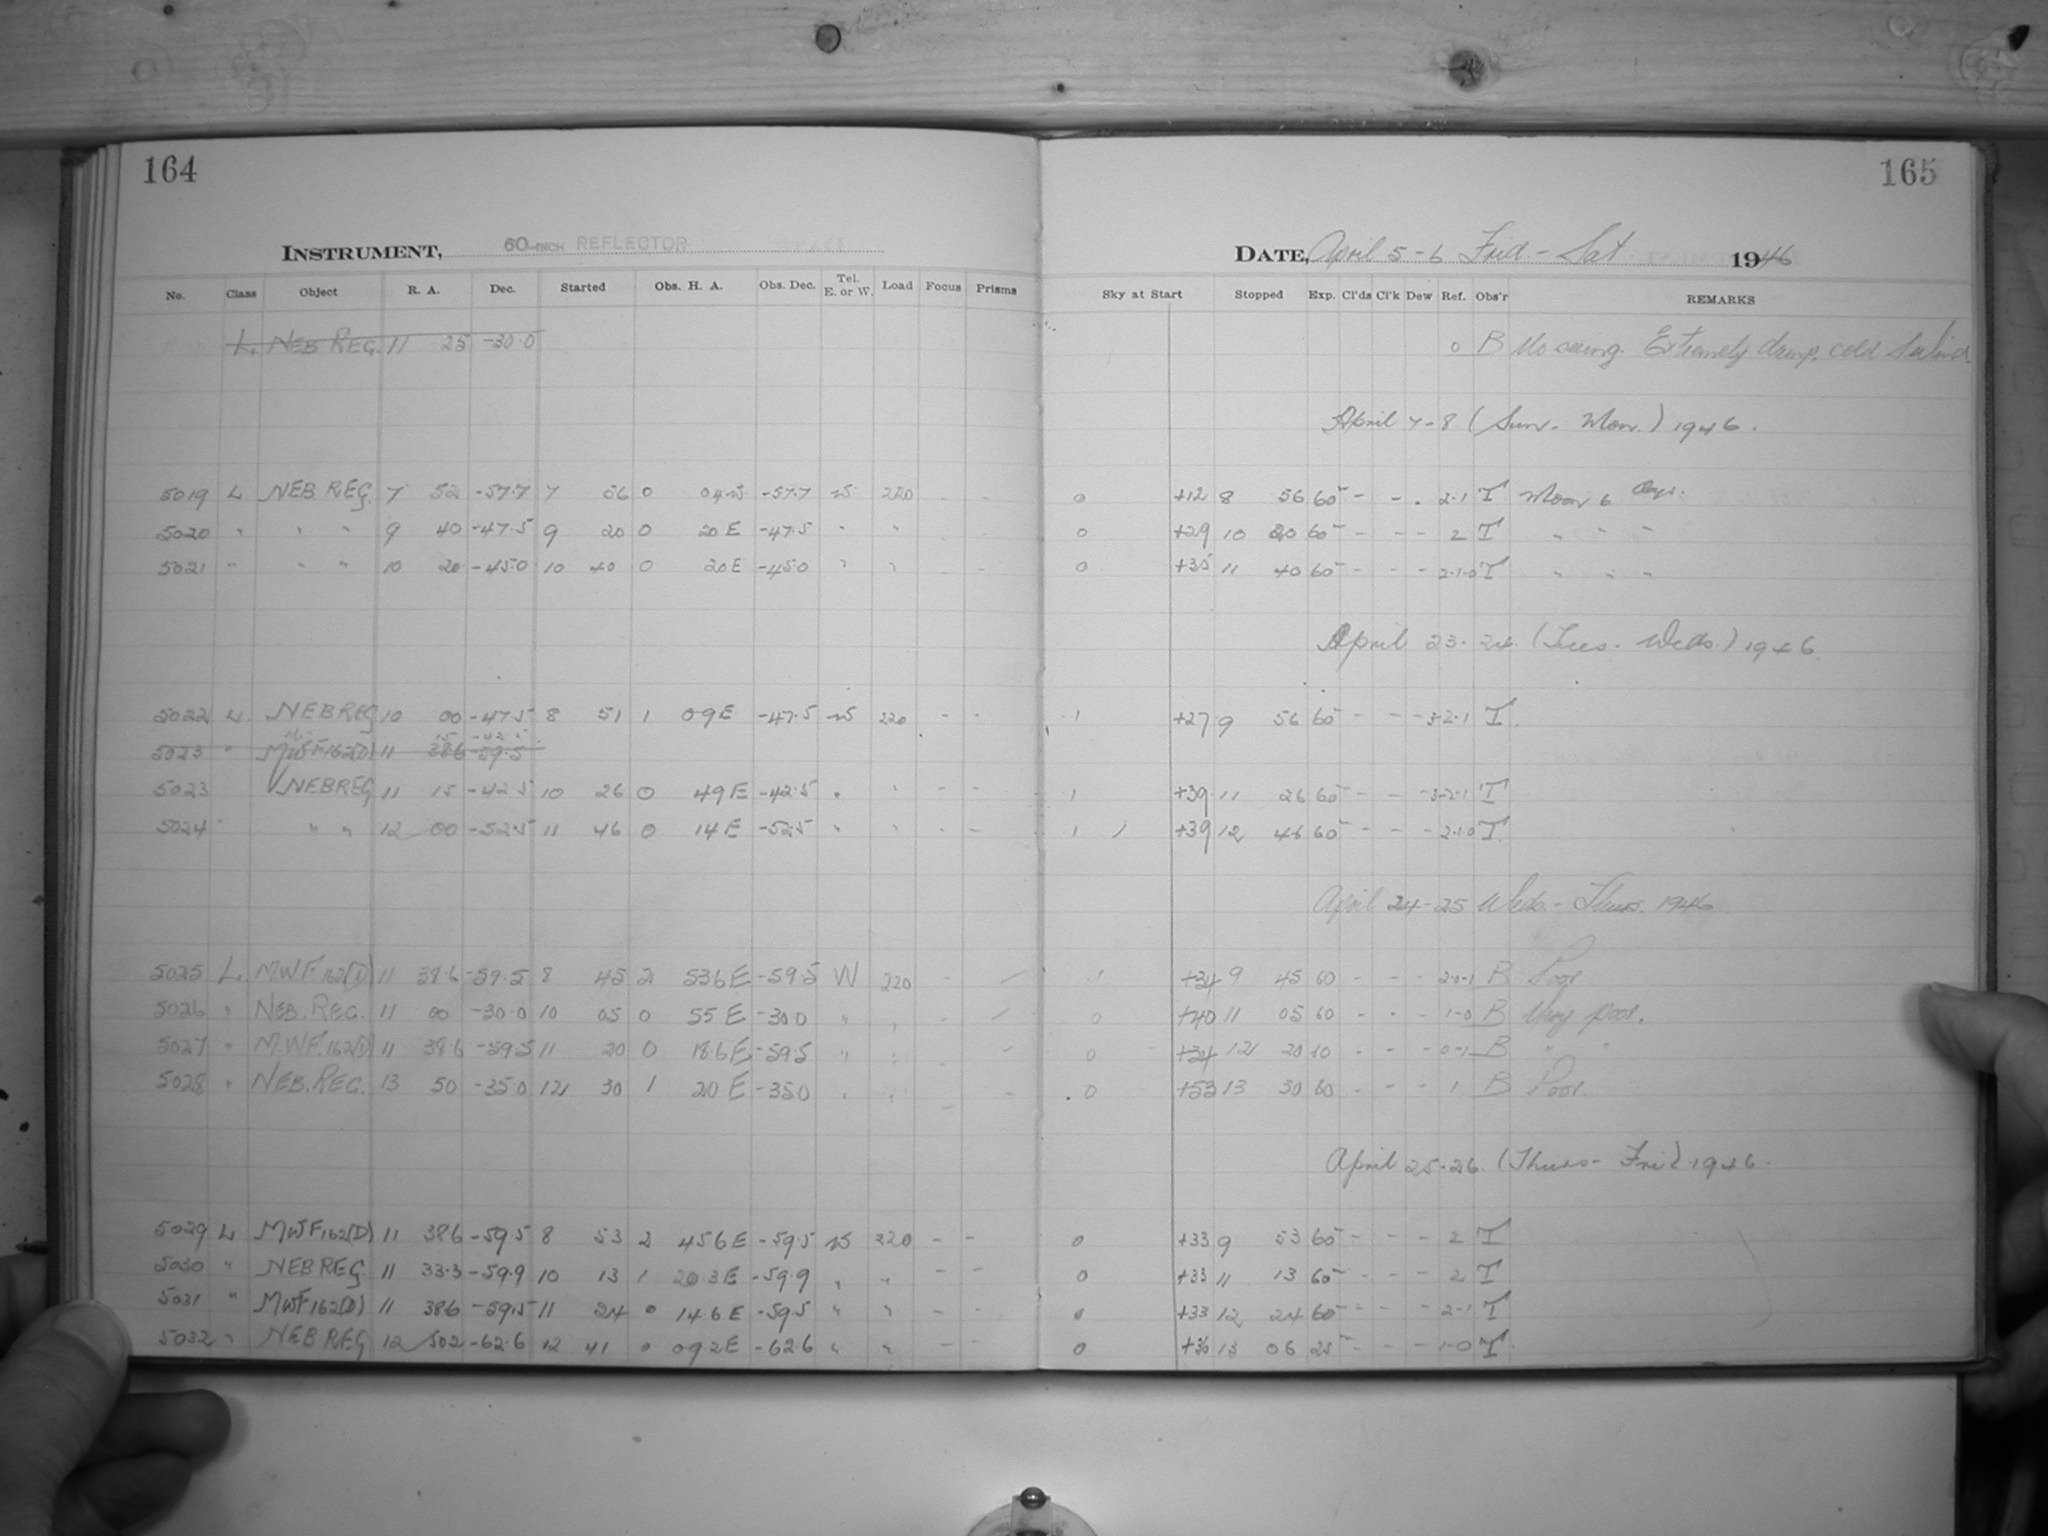 164
165
INSTRUMENT, 60-INCH REFLECTOR
DATE, April 5-6 Frid - Sat 1946
No. Class Object R. A. Dec. Started Obs. H. A. Obs. Dec. Tel. E. or W. Load Focus Prisms Sky at Start Stopped Exp. Cl'ds Cl'k Dew Ref. Obs'r REMARKS
L. NEB REG. 11 25 -30.0 0 B No seeing. Extremely damp, cold
April 7-8 (Sun. Mon.) 1946.
5019 L. NEB REG. 7 52 -57.7 7 56 0 04 W -57.7 W 220 - - 0 +12 8 56 60 - - . 2.1 T Moon 6 days.
5020 " " " 9 40 -47.5 9 20 0 20 E -47.5 " " 0 +29 10 20 60 - - - 2 T " " "
5021 " " " 10 20 -45.0 10 40 0 20 E -45.0 " " 0 +35 11 40 60 - - - 2.1.0 T " " "
April 23-24 (Tues. Weds.) 1946.
5022 L. NEB REG 10 00 -47.5 8 51 1 09 E -47.5 W 220 - - 1 +27 9 56 60 - - - 3-2.1 T
5023 " MWF162(D) 11 38.6 -59.5
5023 NEB REG 11 15 -42.5 10 26 0 49 E -42.5 " " - - 1 +39 11 26 60 - - - 3-2.1 T
5024 " " 12 00 -52.5 11 46 0 14 E -52.5 " " - - 1 +39 12 46 60 - - - 2.1.0 T
April 24-25 Weds. - Thurs. 1946
5025 L. MWF 162(D) 11 38.6 -59.5 8 45 2 53.6 E -59.5 W 220 - 1 +34 9 45 60 - - - 2-0-1 B Poor
5026 " NEB. REG. 11 00 -30.0 10 05 0 55 E -30.0 " " - 0 +40 11 05 60 - - - 1-0 B Very poor.
5027 " M.W.F. 162(D) 11 38.6 -59.5 11 20 0 18.6 E -59.5 " " - 0 +34 12 20 60 - - - 0-1 B " "
5028 " NEB. REG. 13 50 -35.0 12 30 1 20 E -35.0 " " - - 0 +53 13 30 60 - - - 1 B Poor.
April 25-26. (Thurs - Fri) 1946.
5029 L MWF162(D) 11 38.6 -59.5 8 53 2 45.6 E -59.5 W 220 - - 0 +33 9 53 60 - - - 2 T
5030 " NEB REG 11 33.3 -59.9 10 13 1 20.3 E -59.9 " " - - 0 +33 11 13 60 - - - 2 T
5031 " MWF162(D) 11 38.6 -59.5 11 24 0 14.6 E -59.5 " " - - 0 +33 12 24 60 - - - 2-1 T
5032 " NEB REG 12 50.2 -62.6 12 41 0 09.2 E -62.6 " " - - 0 +36 13 06 25 - - - 1-0 T